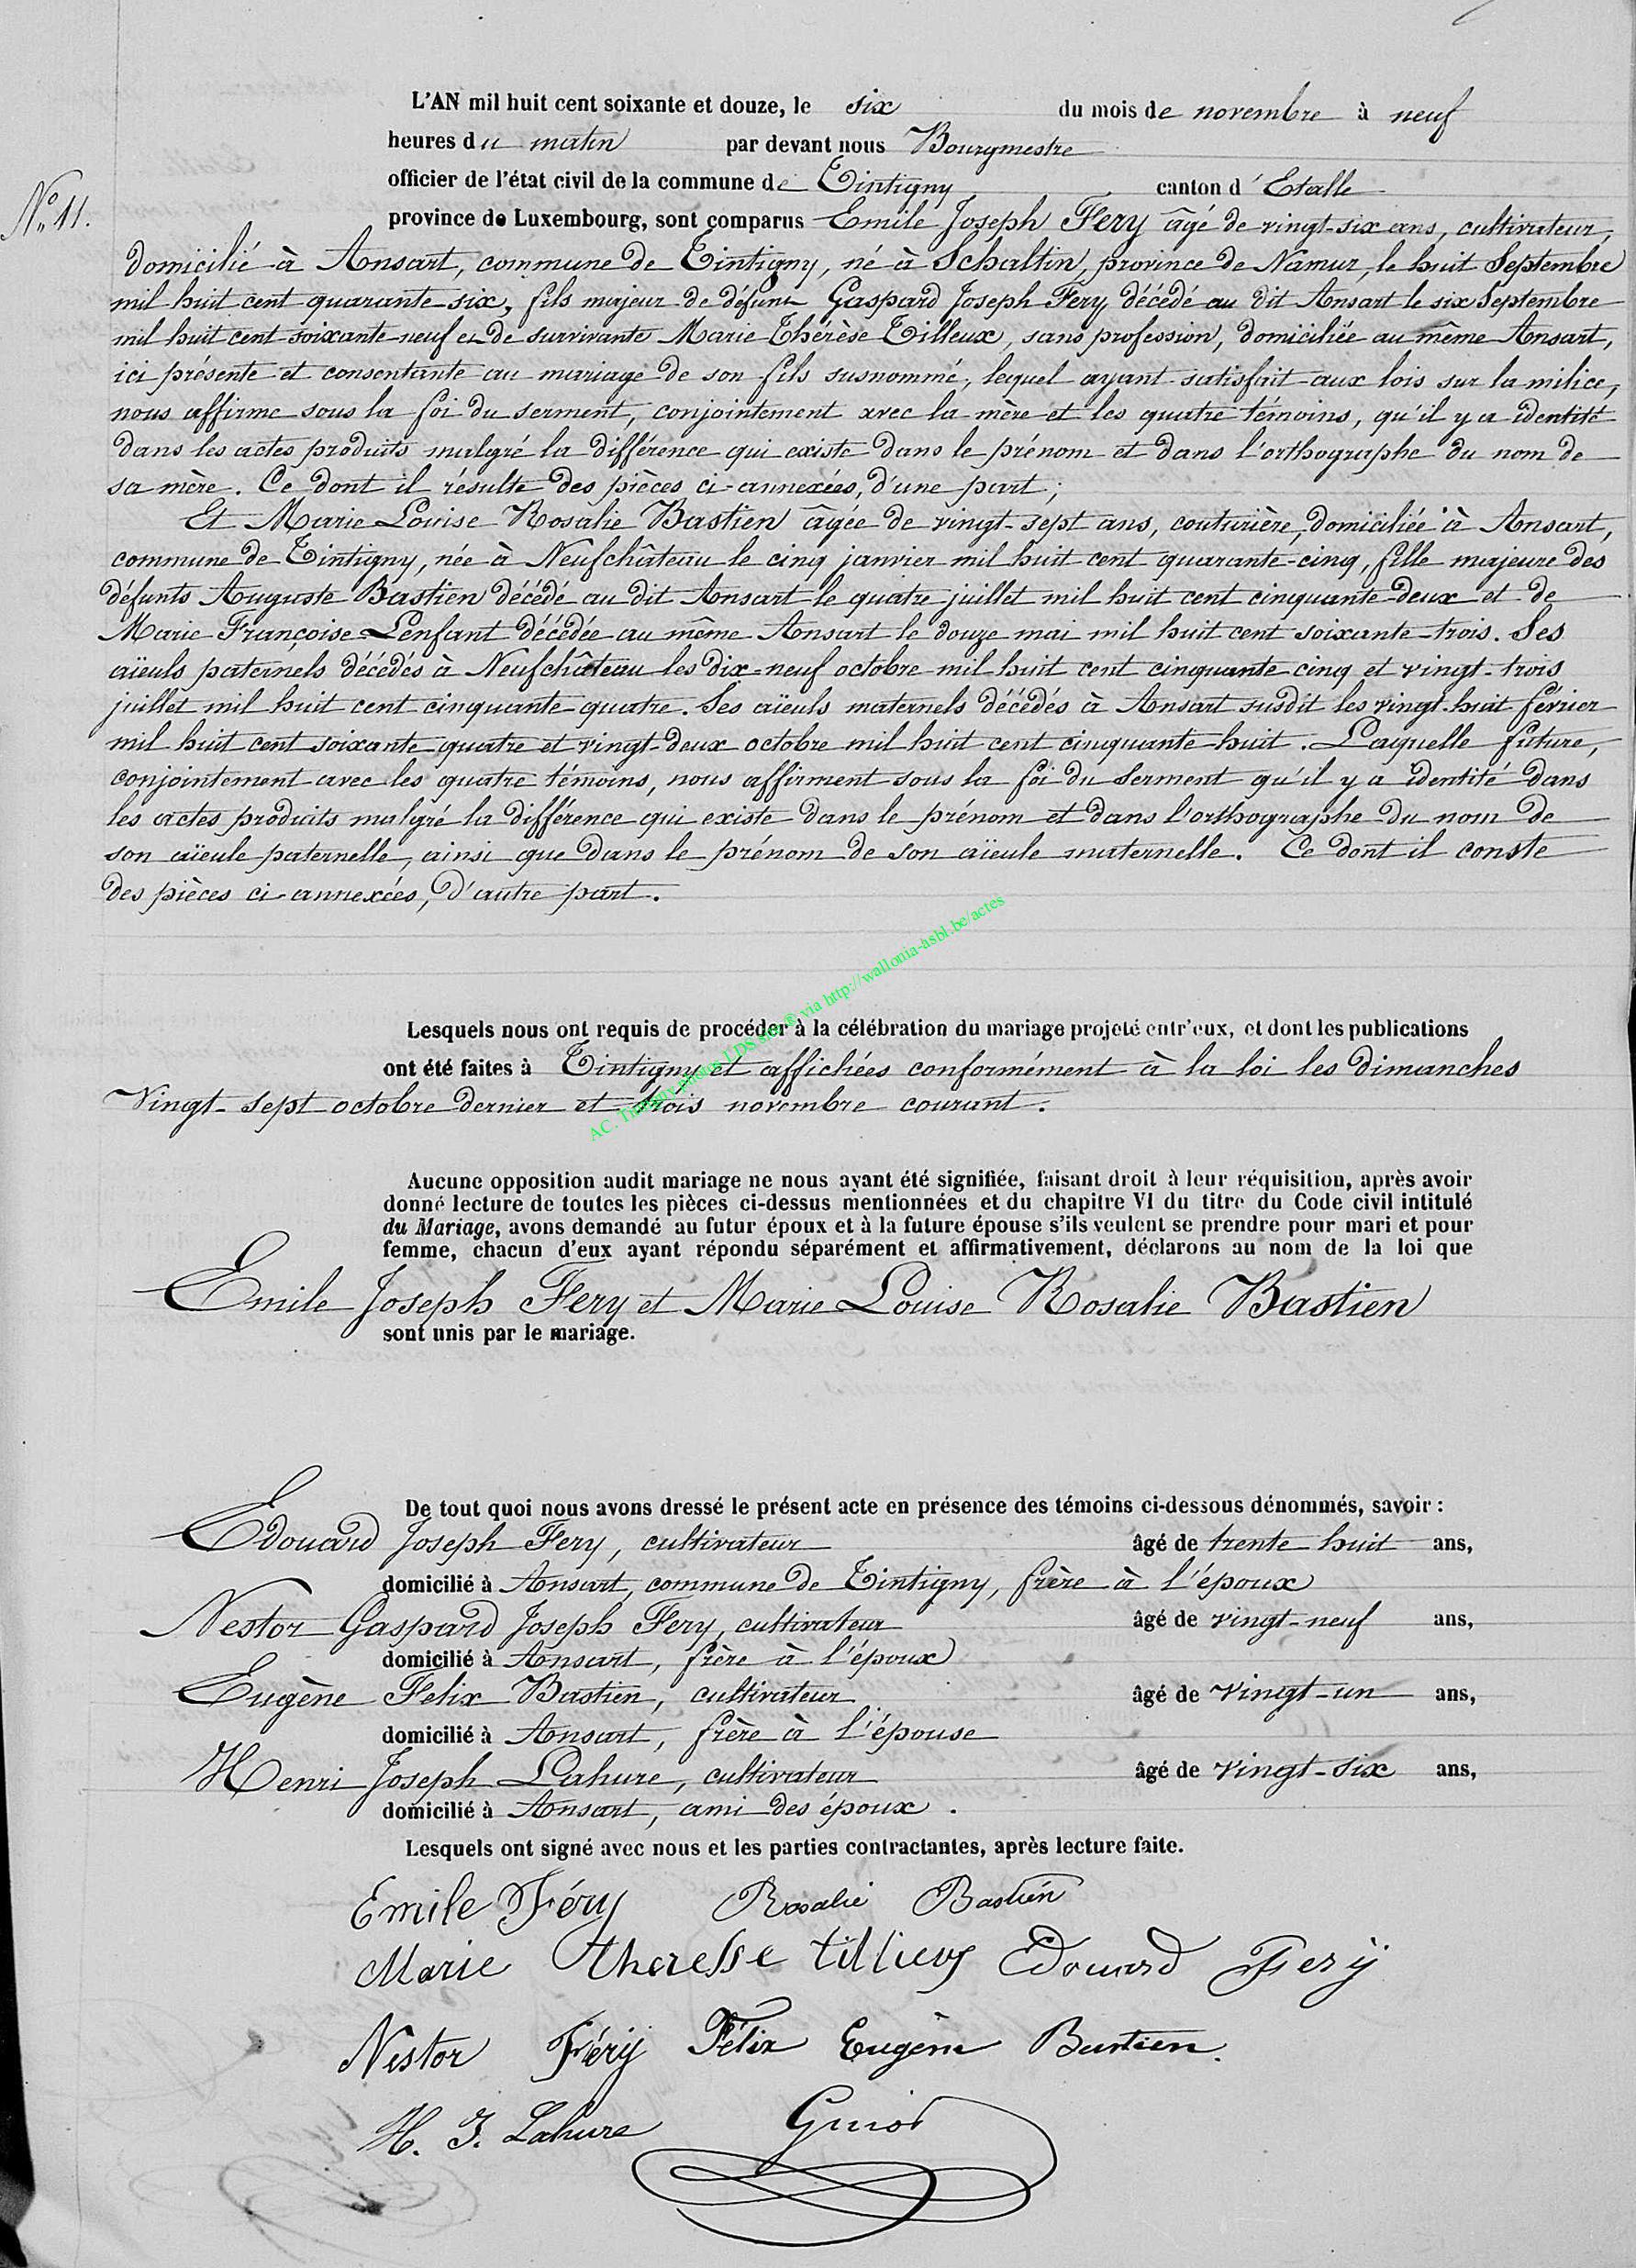 L'AN mil huit cent soixante et douze, le six du mois de novembre à neuf
heures du matin par devant nous Bourgmestre
officier de l'état civil de la commune de Tintigny canton d'Etalle
N° 11.
province de Luxembourg, sont comparus Emile Joseph Fery âgé de vingt-six ans, cultivateur,
domicilié à Ansart, commune de Tintigny, né à Schaltin, province de Namur, le huit Septembre
mil huit cent quarante-six, fils majeur de défunt Gaspard Joseph Fery, décédé au dit Ansart le six Septembre
mil huit cent soixante-neuf et de survivante Marie Thérèse Tilleux, sans profession, domiciliée au même Ansart,
ici présente et consentante au mariage de son fils susnommé, lequel ayant satisfait aux lois sur la milice,
nous affirme sous la foi du serment, conjointement avec la mère et les quatre témoins, qu'il y a identité
dans les actes produits malgré la différence qui existe dans le prénom et dans l'orthographe du nom de
sa mère. Ce dont il résulte des pièces ci-annexées, d'une part;
Et Marie Louise Rosalie Bastien âgée de vingt-sept ans, couturière, domiciliée à Ansart,
commune de Tintigny, née à Neufchâteau le cinq janvier mil huit cent quarante-cinq, fille majeure des
défunts Auguste Bastien décédé au dit Ansart le quatre juillet mil huit cent cinquante-deux et de
Marie Françoise Lenfant décédée au même Ansart le douze mai mil huit cent soixante-trois. Ses
aïeuls paternels décédés à Neufchâteau les dix-neuf octobre mil huit cent cinquante cinq et vingt-trois
juillet mil huit cent cinquante-quatre. Ses aïeuls maternels décédés à Ansart susdit les vingt-huit février
mil huit cent soixante quatre et vingt-deux octobre mil huit cent cinquante-huit. Laquelle future,
conjointement avec les quatre témoins, nous affirment sous la foi du Serment qu'il y a identité dans
les actes produits malgré la différence qui existe dans le prénom et dans l'orthographe du nom de
son aïeule paternelle, ainsi que dans le prénom de son aïeule maternelle. Ce dont il conste
des pièces ci-annexées, d'autre part.
AC. Tintigny photos LDS sion® via http://wallonia-asbl.be/actes
Lesquels nous ont requis de procéder à la célébration du mariage projeté entr'eux, et dont les publications
ont été faites à Tintigny et affichées conformément à la loi les dimanches
Vingt-sept octobre dernier et trois novembre courant.
Aucune opposition audit mariage ne nous ayant été signifiée, faisant droit à leur réquisition, après avoir
donné lecture de toutes les pièces ci-dessus mentionnées et du chapitre VI du titre du Code civil intitulé
du Mariage, avons demandé au futur époux et à la future épouse s'ils veulent se prendre pour mari et pour
femme, chacun d'eux ayant répondu séparément et affirmativement, déclarons au nom de la loi que
Emile Joseph Fery et Marie Louise Rosalie Bastien
sont unis par le mariage.
De tout quoi nous avons dressé le présent acte en présence des témoins ci-dessous dénommés, savoir :
Edouard Joseph Fery, cultivateur âgé de trente huit ans,
domicilié à Ansart, commune de Tintigny, frère à l'époux
Nestor Gaspard Joseph Fery, cultivateur âgé de vingt-neuf ans,
domicilié à Ansart, frère à l'époux
Eugène Felix Bastien, cultivateur âgé de vingt-un ans,
domicilié à Ansart, frère à l'épouse
Henri Joseph Lahure, cultivateur âgé de vingt-six ans,
domicilié à Ansart, ami des époux.
Lesquels ont signé avec nous et les parties contractantes, après lecture faite.
Emile Féry Rosalie Bastien
Marie theresse tillieux Edouard Fery
Nestor Féry Félix Eugène Bastien.
H. J. Lahure Guiot